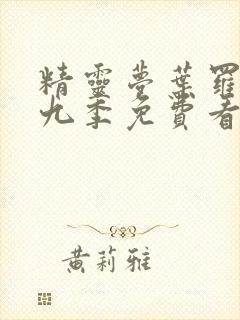 精靈夢葉羅
九季免費看
黃莉雅